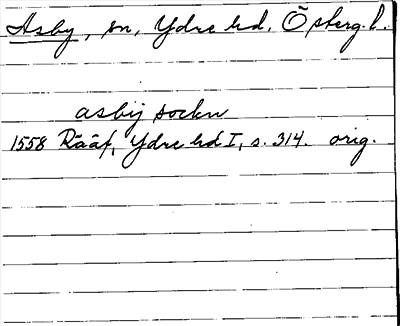 Asby, sn, Ydre hd, Österg. l.
asbij sockn
1558 Rääf, Ydre hd I, s. 314. orig.